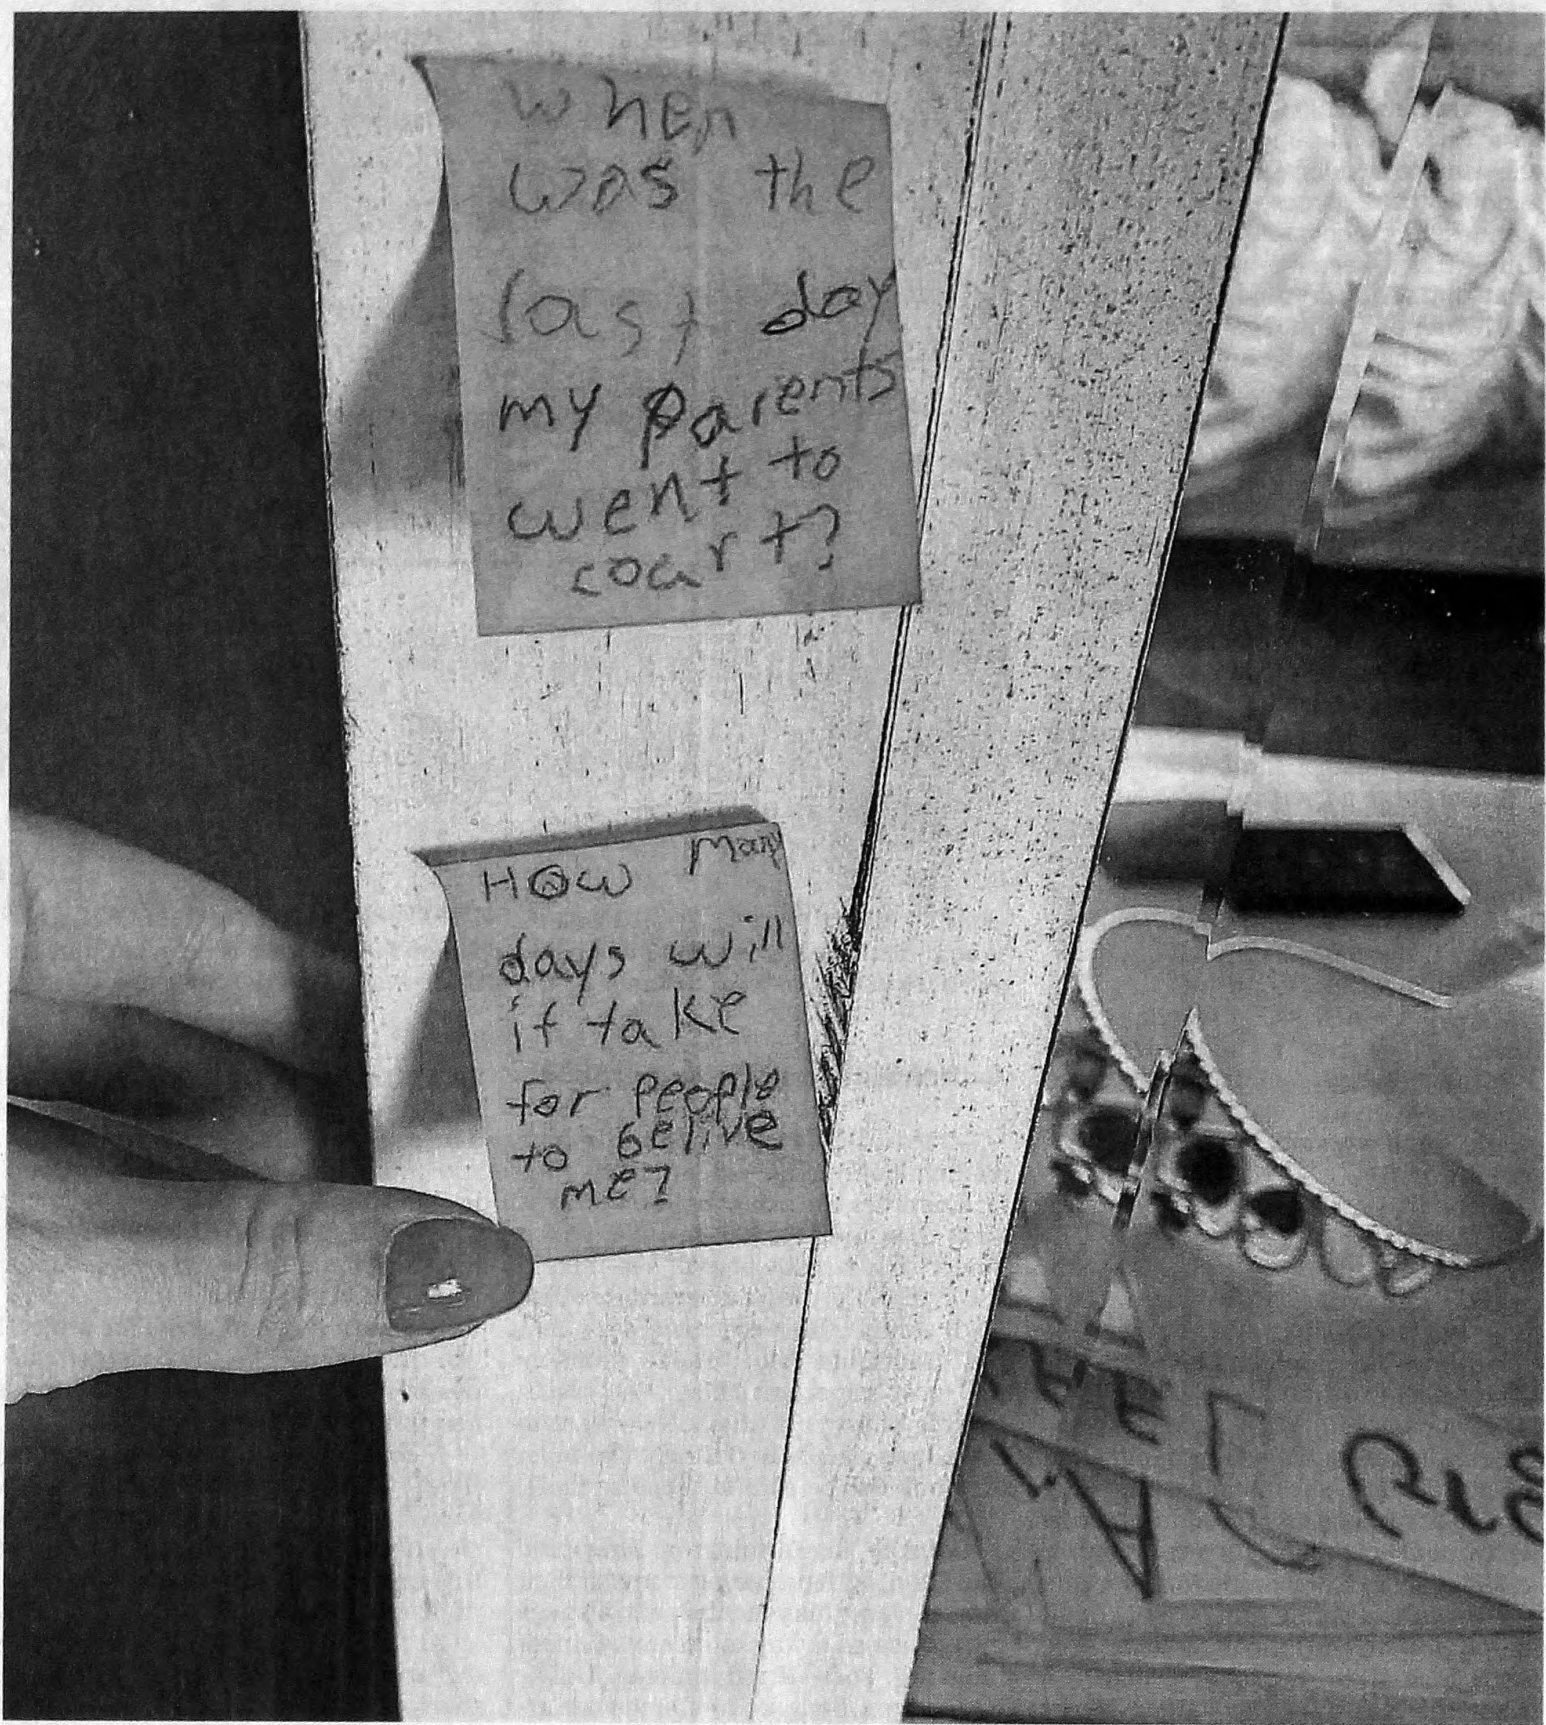 When
was the
last day
my parents
went to
court?
How many
days will
it take
for people
to belive
me?